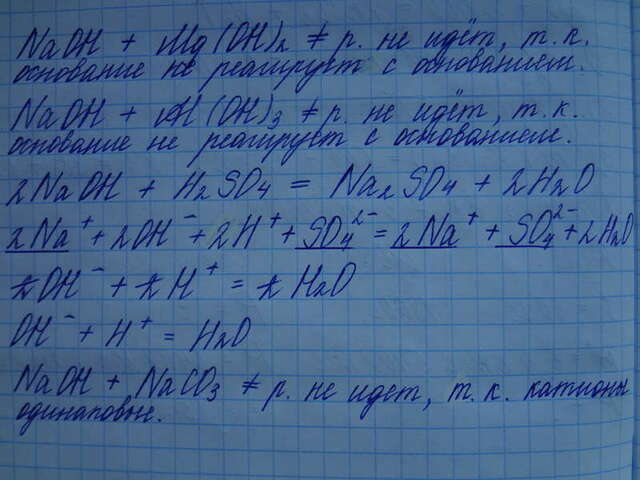 NaOH + Mg(OH)₂ ≠ р. не идёт, т.к.
основание не реагирует с основанием.
NaOH + Al(OH)₃ ≠ р. не идёт, т.к.
основание не реагирует с основанием.
2NaOH + H₂SO₄ = Na₂SO₄ + 2H₂O
2Na⁺ + 2OH⁻ + 2H⁺ + SO₄²⁻ = 2Na⁺ + SO₄²⁻ + 2H₂O
2OH⁻ + 2H⁺ = 2H₂O
OH⁻ + H⁺ = H₂O
NaOH + NaCO₃ ≠ р. не идет, т.к. катионы
одинаковые.